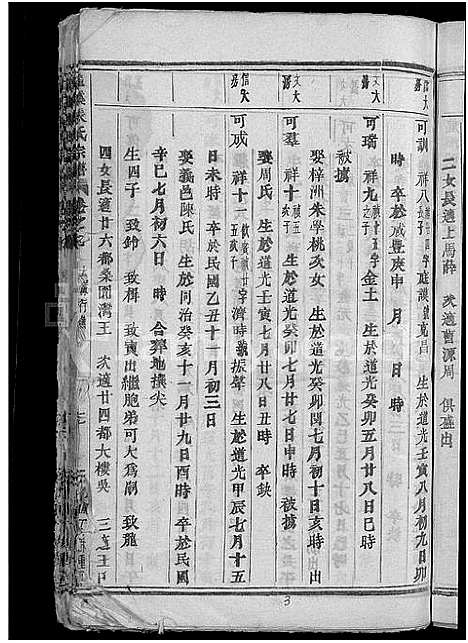 二女長適上馬薛 次適曹源周 俱產出
信大房 可訓 祥八 庭謨 號克昌 生於道光壬寅八月初九日卯
時 卒於咸豐庚申 月 日 時
文大房 可瑞 祥九 字金玉 生於道光癸卯五月廿八日巳時
被擄
娶梓洲朱學桃次女 生於道光癸卯閏七月初十日亥時 出
文大房 可羣 祥十 生於道光癸卯七月初十日丑時 被擄
娶周氏 生於道光壬寅七月廿八日丑時 卒缺
信大房 可成 祥十一 字濟時 號振聲 生於道光甲辰七月十五
日未時 卒於民國乙丑十一月初三日
娶義邑陳氏 生於同治癸亥十一月廿九日酉時 卒於民國
辛巳七月初六日 時 合葬地攘尖
生四子 致鈴 致楫 致寅出繼胞弟可大為嗣 致龍
四女長適廿六都桑園灣王 次適廿四都大樓吳 三適
張氏宗譜
3